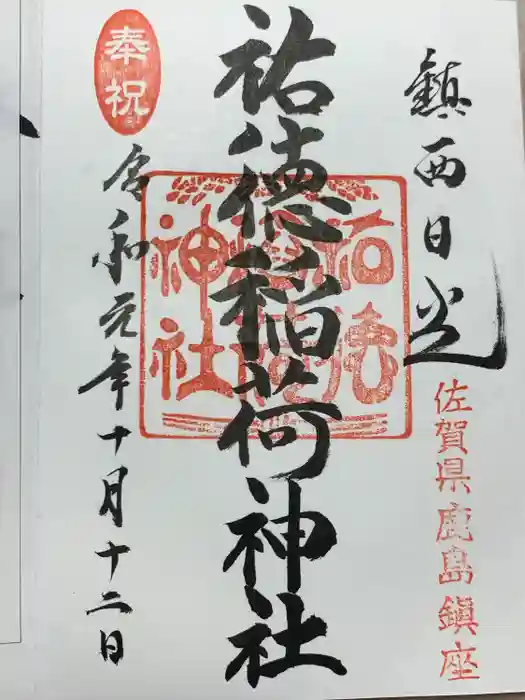 鎮西日光
佐賀県鹿島鎮座
祐徳稲荷神社
祐徳
稲荷
神社
奉祝
令和元年十月十二日